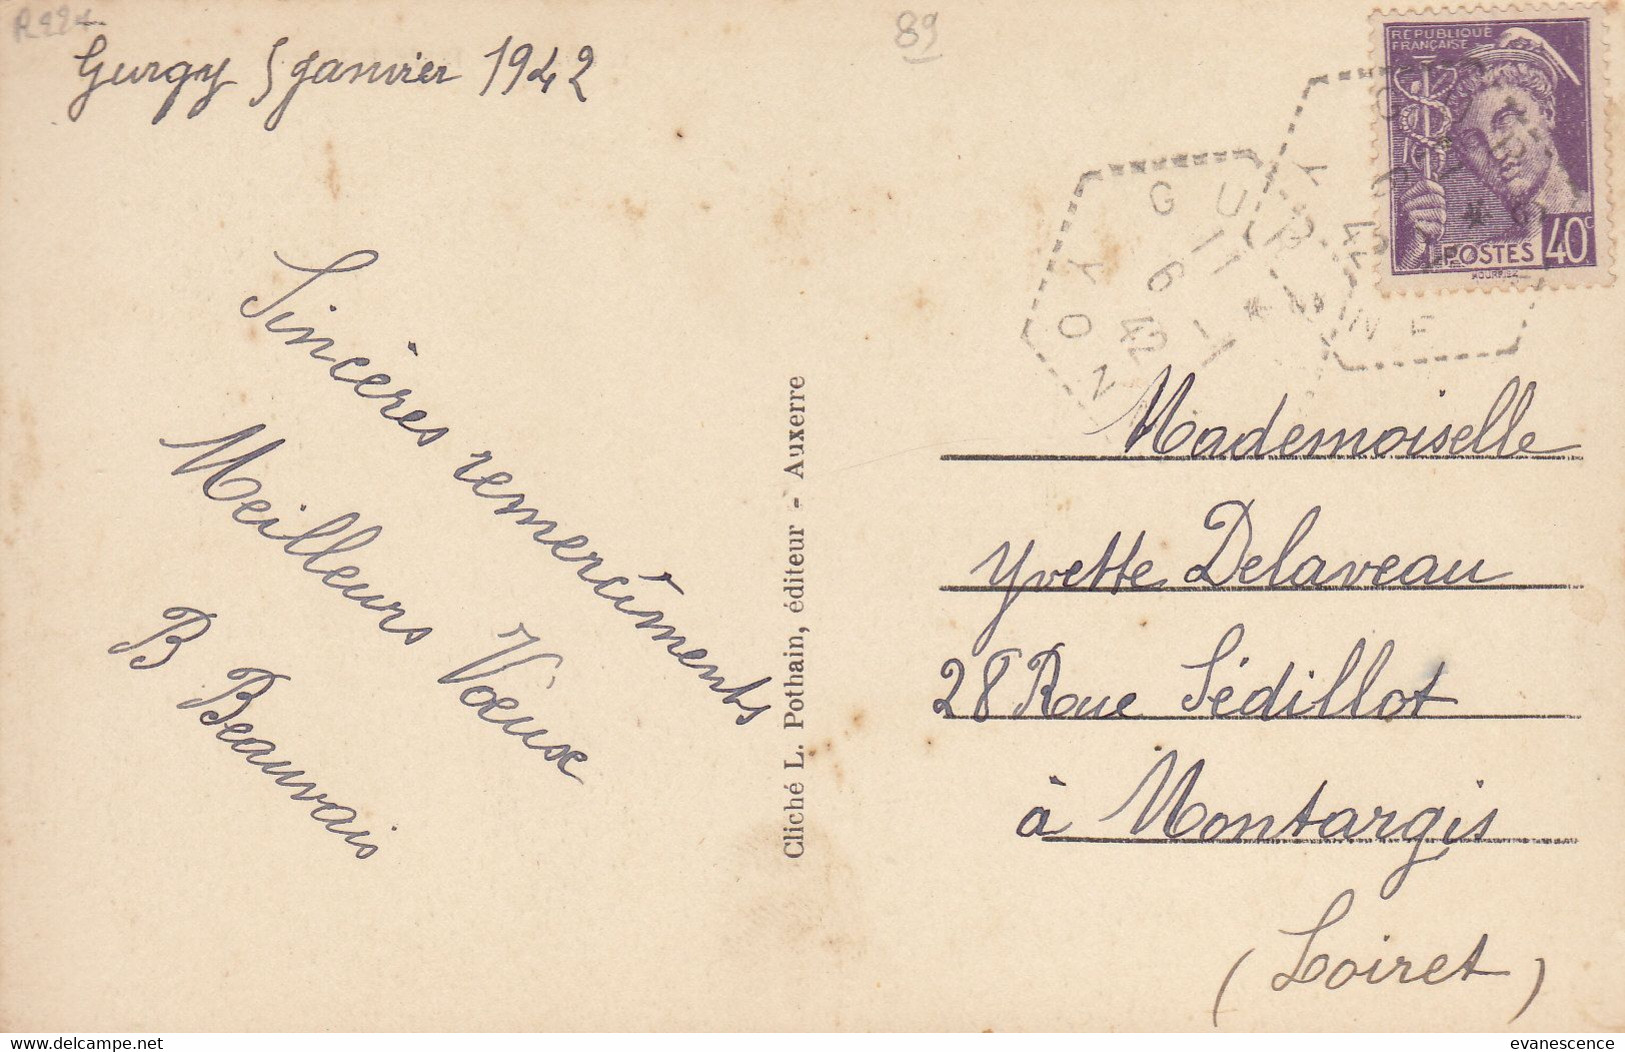 89
Gurgy 5 janvier 1942
Sincères remerciments
Meilleurs Vœux
B Beauvais
Cliché L. Pothain, éditeur - Auxerre
REPUBLIQUE
FRANÇAISE
POSTES 40c
GURGY
11
6 1
42
YONNE
Mademoiselle
Yvette Delaveau
28 Rue Sédillot
à Montargis
(Loiret)
delcampe.net
evanescence